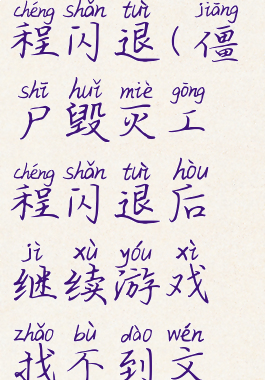 chéng shǎn tuì jiāng
程闪退(僵
shī huǐ miè gōng
尸毁灭工
chéng shǎn tuì hòu
程闪退后
jì xù yóu xì
继续游戏
zhǎo bù dào wén
找不到文